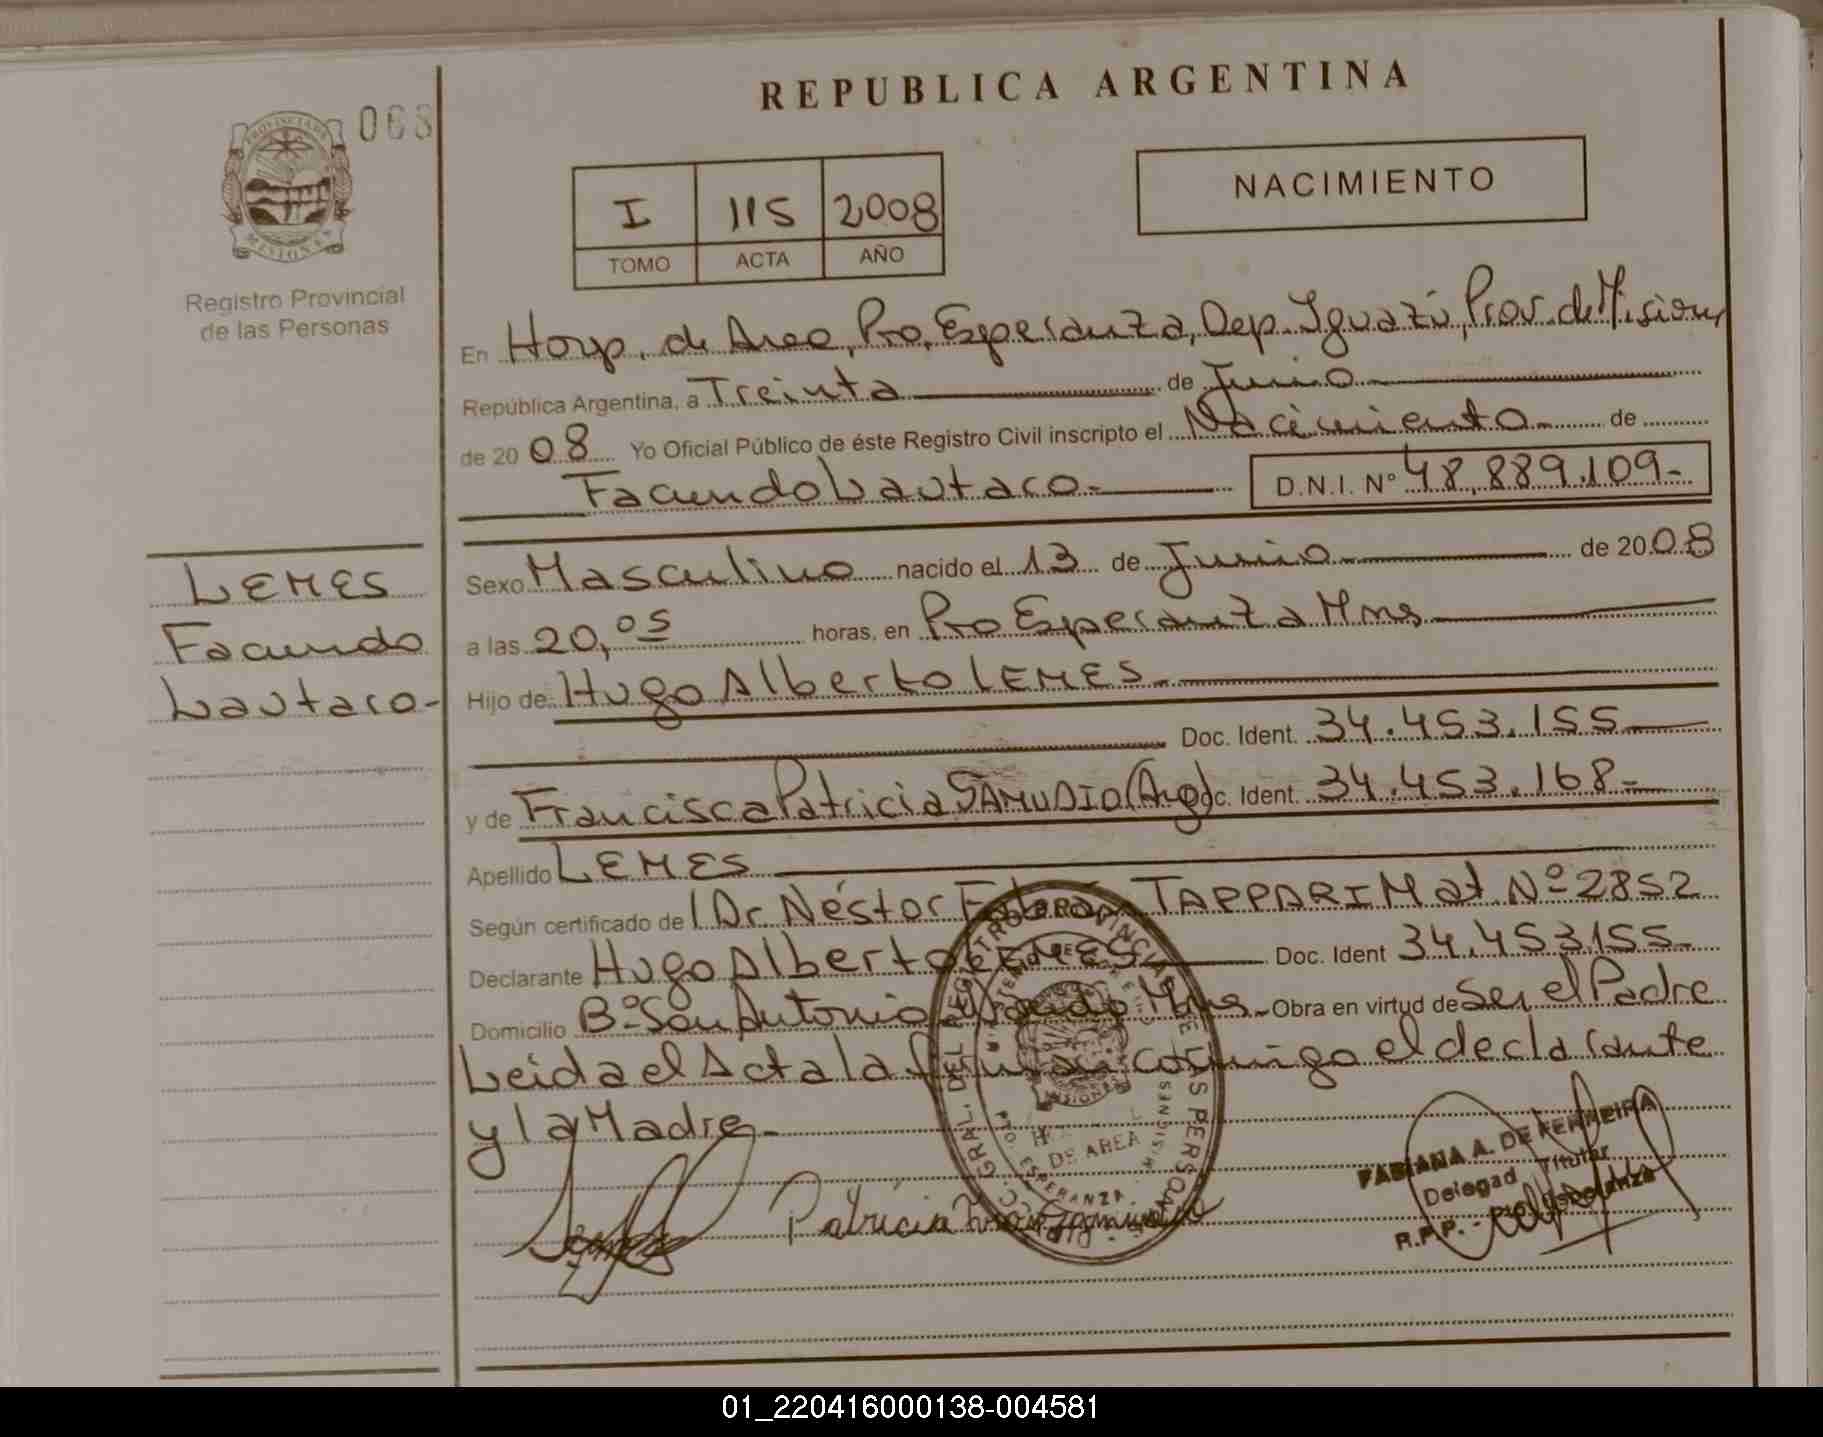 REPUBLICA ARGENTINA
PROVINCIA DE
MISIONES
Registro Provincial
de las Personas
I 115 2008
TOMO ACTA AÑO
NACIMIENTO
En Hosp. de Area, Pto. Esperanza, Dep. Iguazú, Prov. de Misiones
República Argentina, a Treinta de Junio
de 2008 Yo Oficial Público de éste Registro Civil inscripto el Nacimiento de
Facundo Lautaro- D.N.I. N° 48.889.109-
LEMES
Facundo
Lautaro-
Sexo Masculino nacido el 13 de Junio de 2008
a las 20,05 horas, en Pto Esperanza Mnes
Hijo de: Hugo Alberto LEMES-
Doc. Ident. 34.453.155
y de Francisca Patricia SAMUDIO (Arg) Doc. Ident. 34.453.168-
Apellido LEMES
Según certificado de Dr. Néstor TAPPARI Mat. Nº 2852
Declarante Hugo Alberto LEMES Doc. Ident 34.453.155-
Domicilio Bº San Antonio Mnes- Obra en virtud de Ser el Padre
Leida el Acta la firman conmigo el declarante
y la Madre-
Patricia
DE AREA
PTO. ESPERANZA - MISIONES
FABIANA A. DE FERREIRA
Delegad Titular
R.P.P. - Pto. Esperanza
01_220416000138-004581